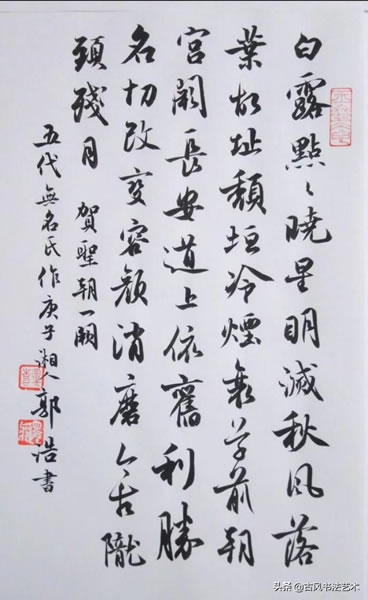 白露點々曉星明滅秋風落
葉故址頹垣冷煙衰草前朝
宮闕長安道上依舊利勝
名切改變容顏消磨今古隴
頭殘月 賀聖朝一闋
五代無名氏作庚子湘人郭浩書
头条 @古风书法艺术